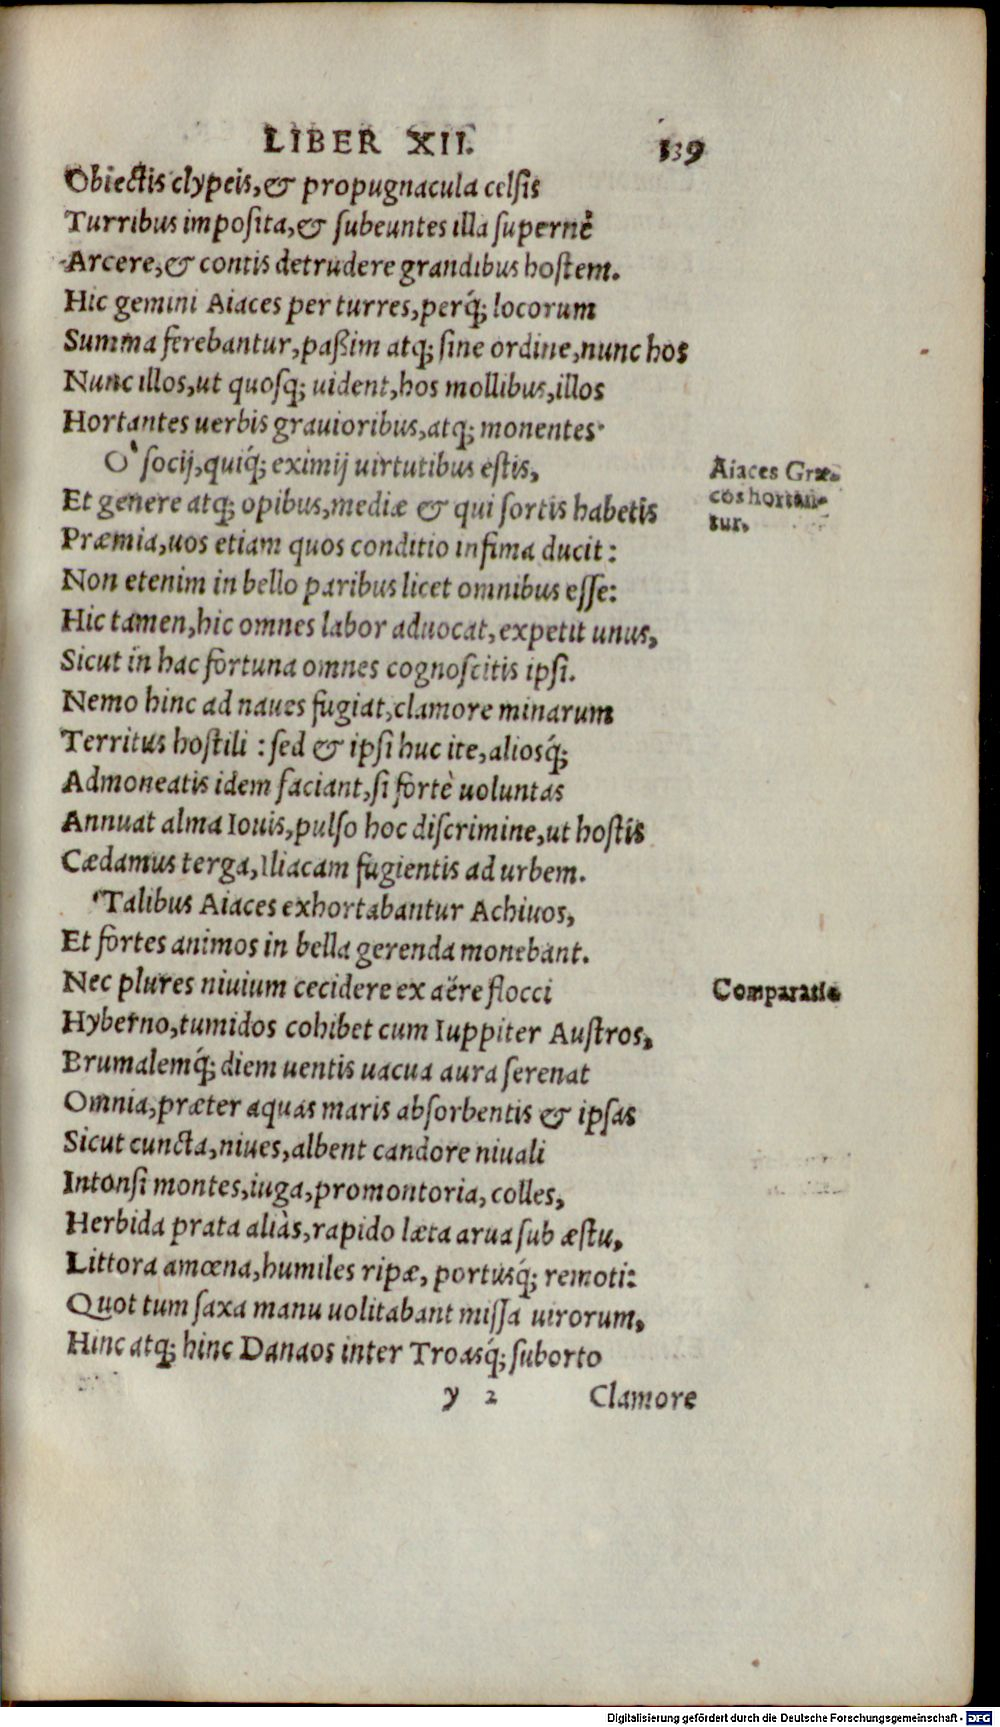 LIBER XII. 139
Obiectis clypeis, & propugnacula celsis
Turribus imposita, & subeuntes illa supernè
Arcere, & contis detrudere grandibus hostem.
Hic gemini Aiaces per turres, perq́; locorum
Summa ferebantur, paßim atq; sine ordine, nunc hos
Nunc illos, ut quosq; uident, hos mollibus, illos
Hortantes uerbis grauioribus, atq; monentes·
O' socij, quiq́; eximij uirtutibus estis,
Aiaces Græ-
cos hortan-
tur.
Et genere atq; opibus, mediæ & qui sortis habetis
Præmia, uos etiam quos conditio infima ducit:
Non etenim in bello paribus licet omnibus esse:
Hic tamen, hic omnes labor aduocat, expetit unus,
Sicut in hac fortuna omnes cognoscitis ipsi.
Nemo hinc ad naues fugiat, clamore minarum
Territus hostili: sed & ipsi huc ite, aliosq́;
Admoneatis idem faciant, si fortè uoluntas
Annuat alma Iouis, pulso hoc discrimine, ut hostis
Cædamus terga, Iliacam fugientis ad urbem.
Talibus Aiaces exhortabantur Achiuos,
Et fortes animos in bella gerenda monebant.
Nec plures niuium cecidere ex aëre flocci
Comparatio
Hyberno, tumidos cohibet cum Iuppiter Austros,
Brumalemq́; diem uentis uacua aura serenat
Omnia, præter aquas maris absorbentis & ipsas
Sicut cuncta, niues, albent candore niuali
Intonsi montes, iuga, promontoria, colles,
Herbida prata aliàs, rapido læta arua sub æstu,
Littora amœna, humiles ripæ, portusq́; remoti:
Quot tum saxa manu uolitabant missa uirorum,
Hinc atq; hinc Danaos inter Troasq́; suborto
y 2 Clamore
Digitalisierung gefördert durch die Deutsche Forschungsgemeinschaft - DFG